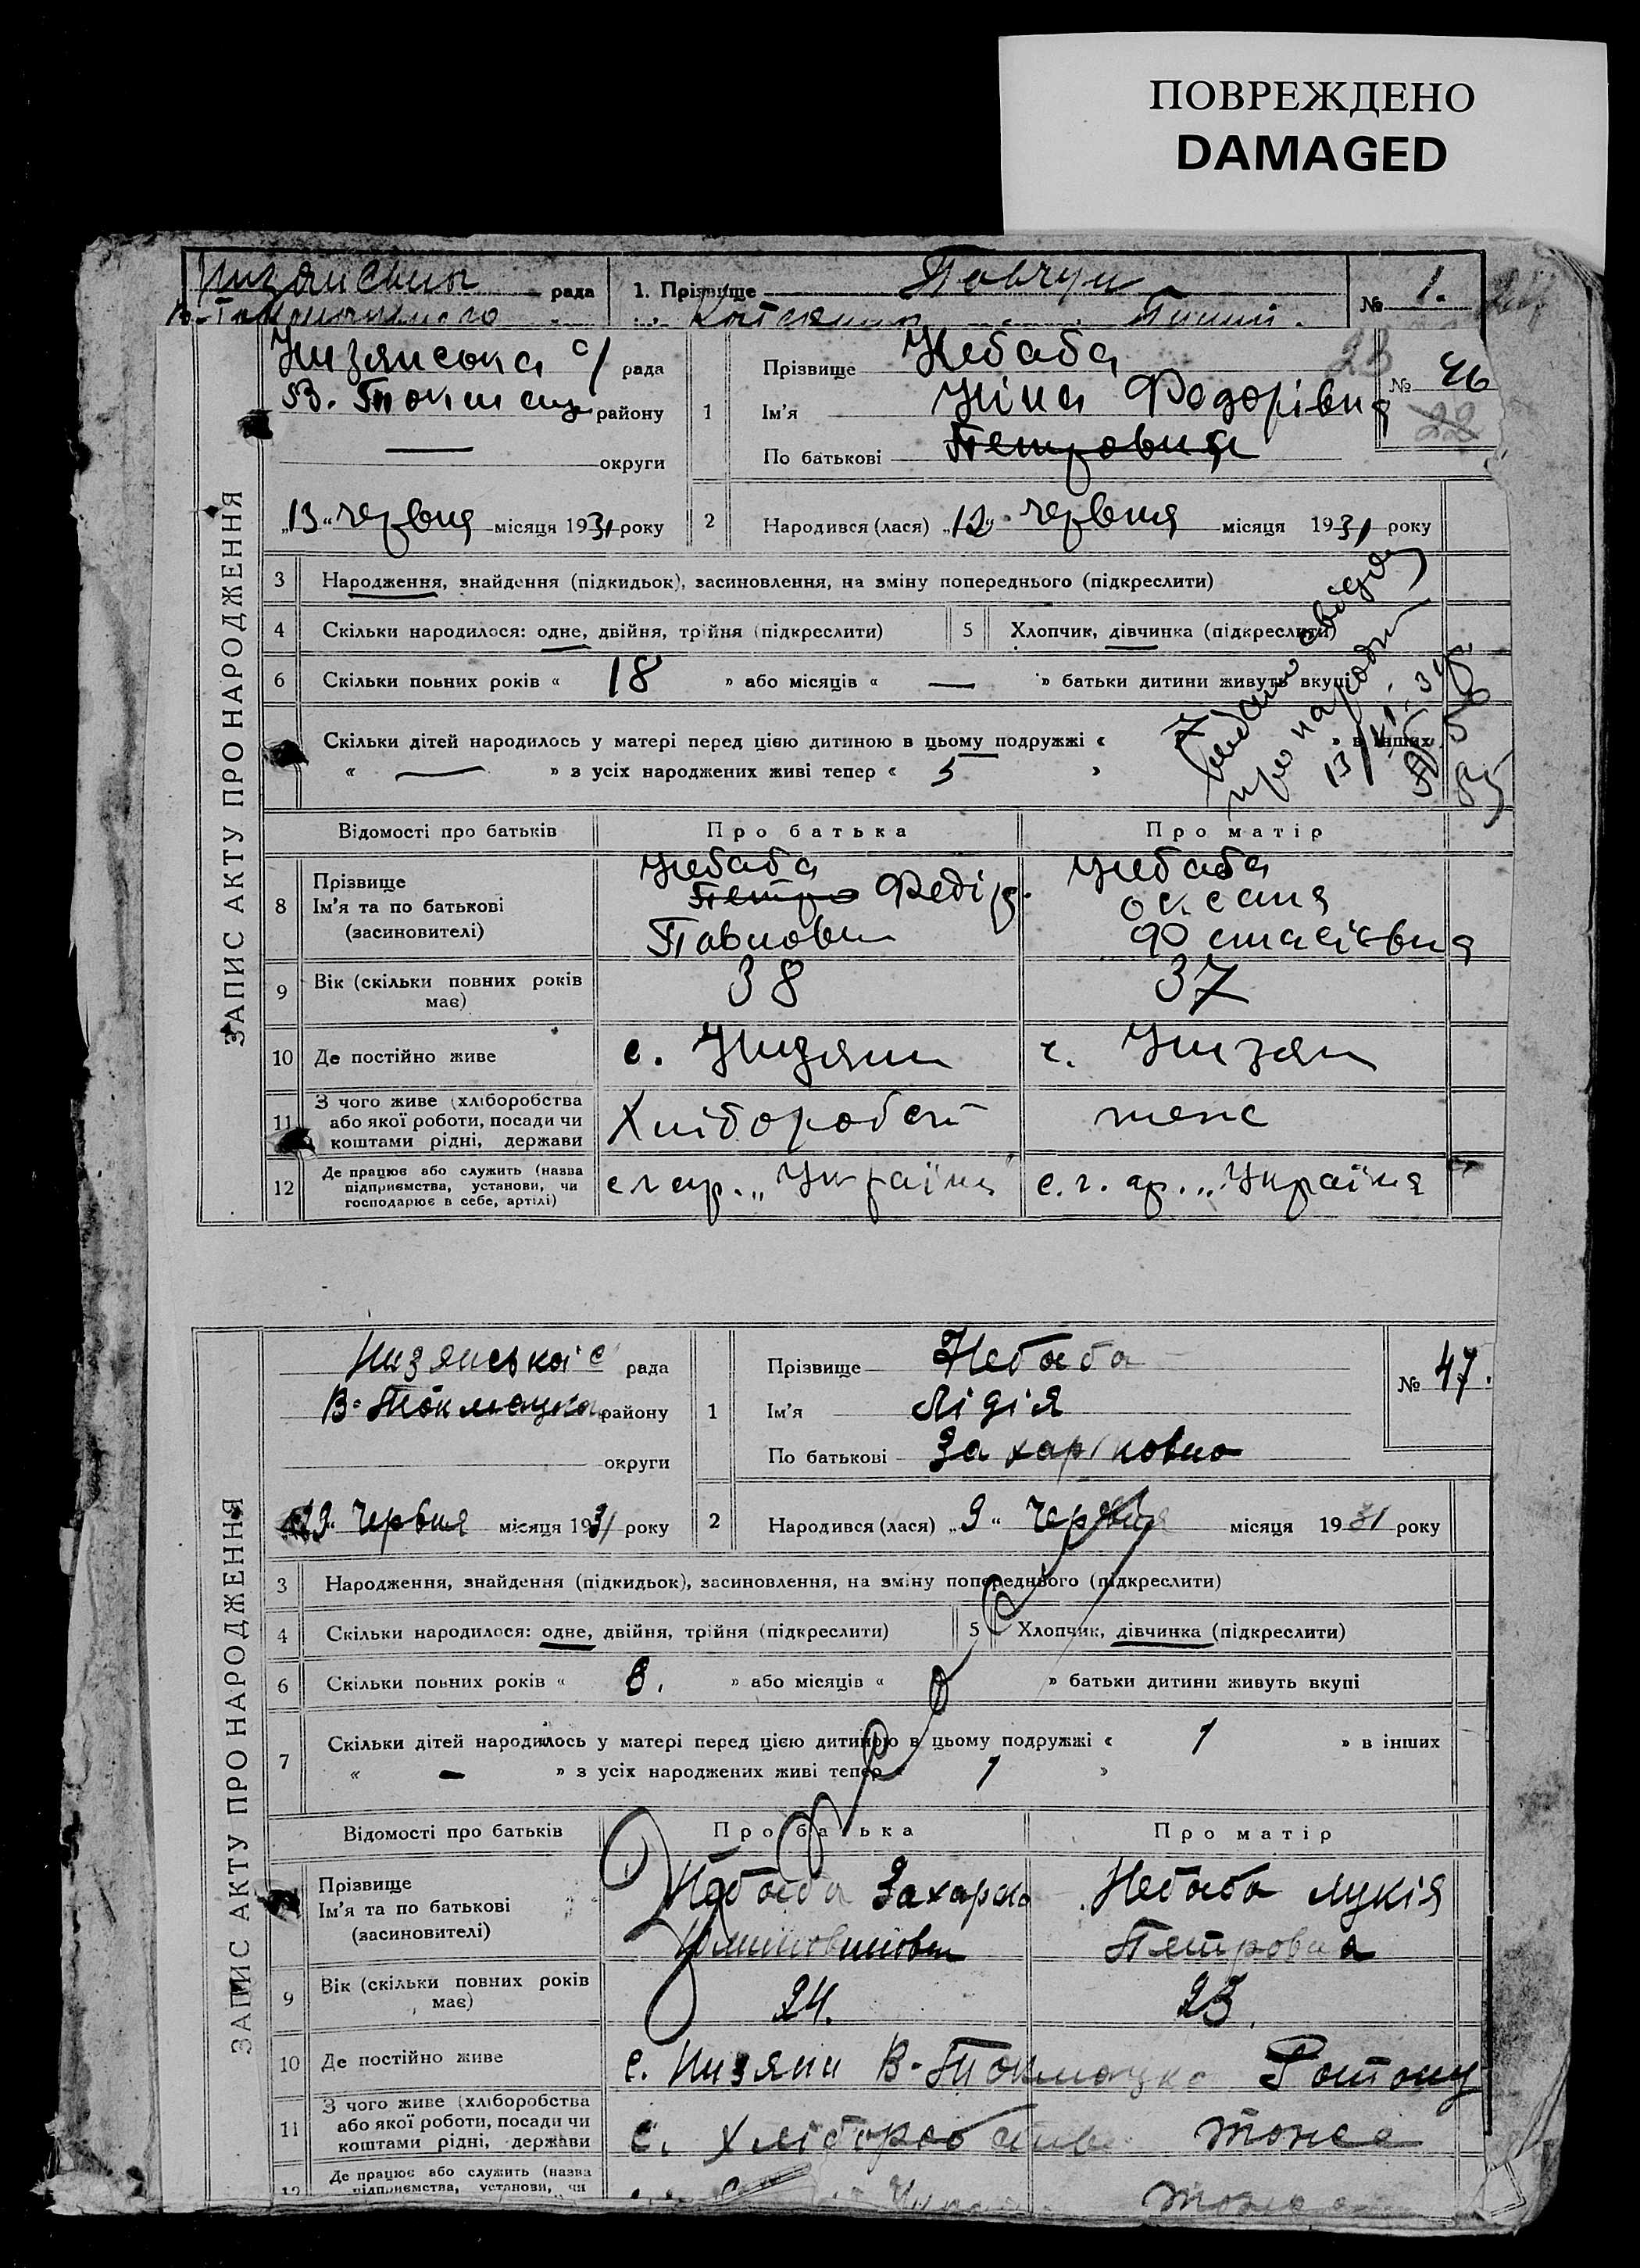 ПОВРЕЖДЕНО
DAMAGED
рада 1. Прізвище № 1.
Низянська с/ рада
В. Токмац району
округи
Прізвище Небаба
1 Ім'я Ніна Федорівна
По батькові Петровна
№ 46
23
22
„13“ червня місяця 1931 року
2 Народився (лася) „12“ червня місяця 1931 року
ЗАПИС АКТУ ПРО НАРОДЖЕННЯ
3 Народження, знайдення (підкидьок), засиновлення, на зміну попереднього (підкреслити)
4 Скільки народилося: одне, двійня, трійня (підкреслити) 5 Хлопчик, дівчинка (підкреслити)
6 Скільки повних років « 18 » або місяців « — » батьки дитини живуть вкупі
Скільки дітей народилось у матері перед цією дитиною в цьому подружжі « 7 » в інших
« — » з усіх народжених живі тепер « 5 »
Відомості про батьків Про батька Про матір
8 Прізвище
Ім'я та по батькові
(засиновителі)
Небаба
Петро Федір
Павлович
Небаба
Оксана
9 Вік (скільки повних років має) 38 37
10 Де постійно живе с. Низяни с. Низяни
11 З чого живе (хліборобства
або якої роботи, посади чи
коштами рідні, держави
Хлібороб тоже
12 Де працює або служить (назва
підприємства, установи, чи
господарює в себе, артілі)
„Україна“ с. г. ар. „Україна
Низянська с рада
В-Токмацько району
округи
Прізвище Небаба
1 Ім'я Лідія
По батькові Захаріковна
№ 47.
червня місяця 1931 року
2 Народився (лася) „9“ червня місяця 1931 року
ЗАПИС АКТУ ПРО НАРОДЖЕННЯ
3 Народження, знайдення (підкидьок), засиновлення, на зміну попереднього (підкреслити)
4 Скільки народилося: одне, двійня, трійня (підкреслити) 5 Хлопчик, дівчинка (підкреслити)
6 Скільки повних років « 8. » або місяців « » батьки дитини живуть вкупі
7 Скільки дітей народилось у матері перед цією дитиною в цьому подружжі « 1 » в інших
« — » з усіх народжених живі тепер « 1 »
Відомості про батьків Про батька Про матір
Прізвище
Ім'я та по батькові
(засиновителі)
Небаба Захарко
Небаба Лукія
Петровна
9 Вік (скільки повних років має) 24. 23.
10 Де постійно живе с. Низяни В-Токмацько
11 З чого живе (хліборобства
або якої роботи, посади чи
коштами рідні, держави
с. тоже
12 Де працює або служить (назва
підприємства, установи, чи
тоже